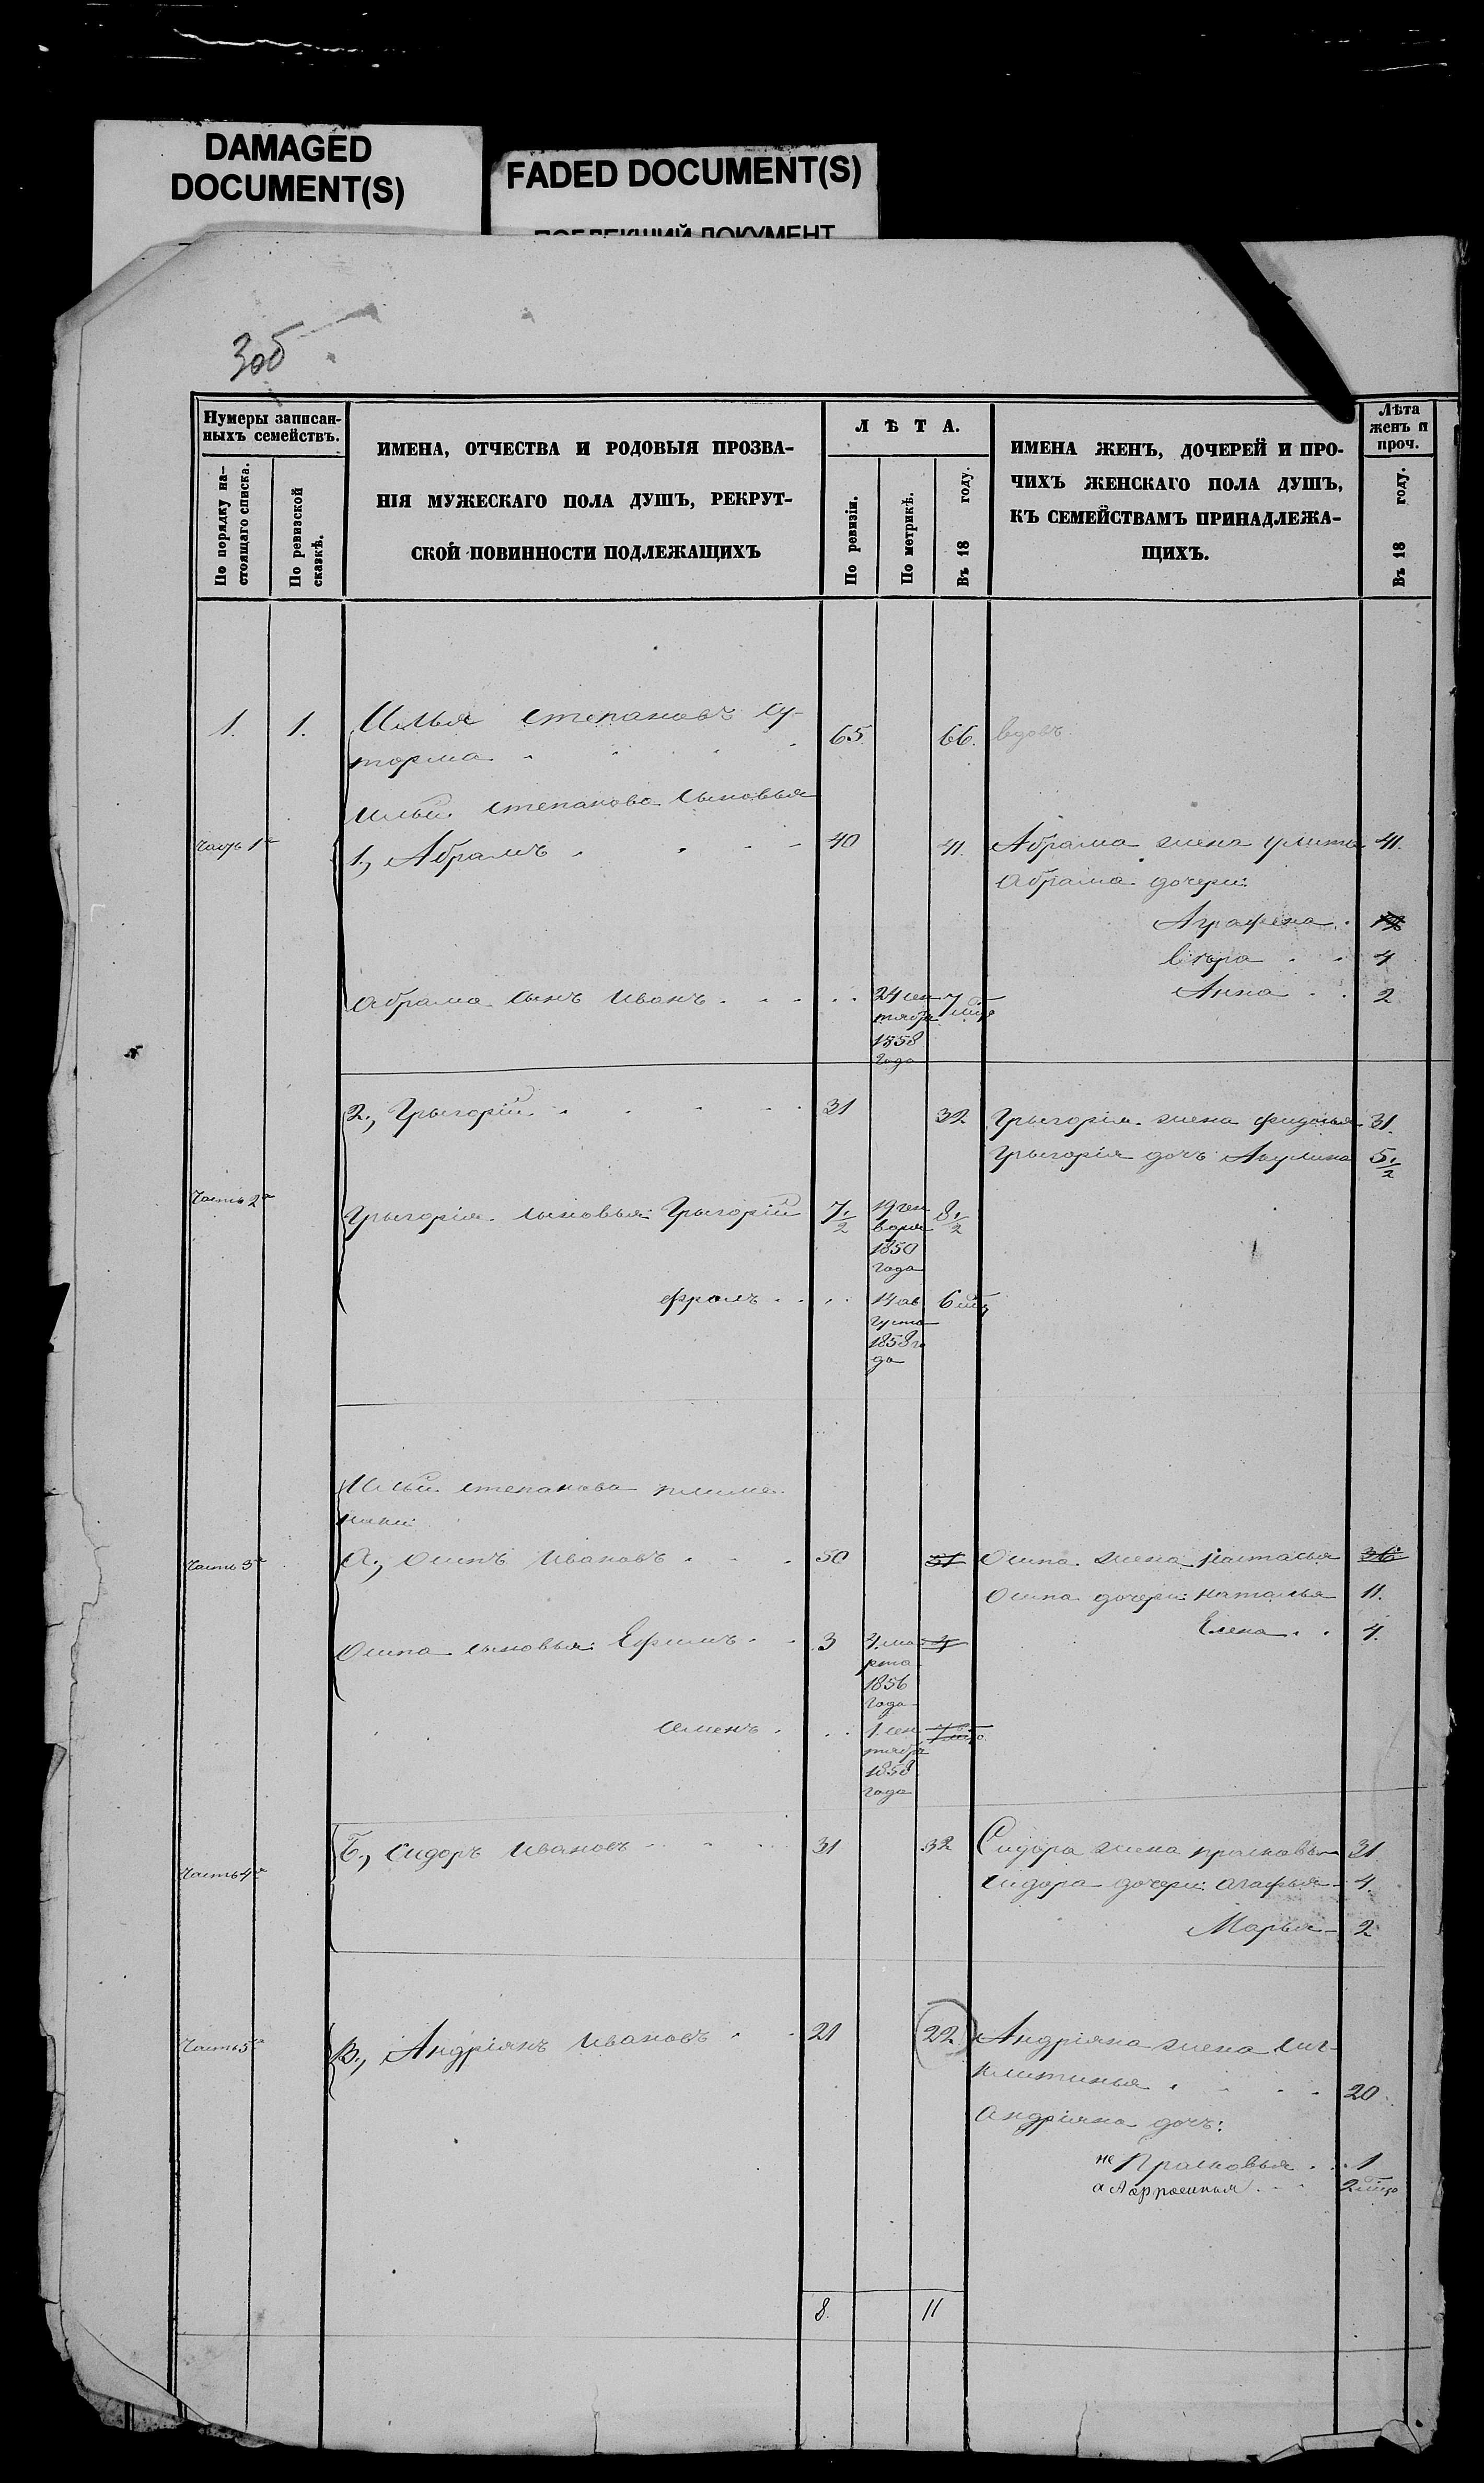 DAMAGED
DOCUMENT(S)
FADED DOCUMENT(S)
ПОБЛЕКШИЙ ДОКУМЕНТ
Зоб
Нумеры записан-
ныхъ семействъ.
По порядку на-
стоящаго списка.
По ревизской
сказкѣ.
ИМЕНА, ОТЧЕСТВА И РОДОВЫЯ ПРОЗВА-
НІЯ МУЖЕСКАГО ПОЛА ДУШЪ, РЕКРУТ-
СКОЙ ПОВИННОСТИ ПОДЛЕЖАЩИХЪ
ЛѢТА.
По ревизіи.
По метрикѣ.
Въ 18 году.
ИМЕНА ЖЕНЪ, ДОЧЕРЕЙ И ПРО-
ЧИХЪ ЖЕНСКАГО ПОЛА ДУШЪ,
КЪ СЕМЕЙСТВАМЪ ПРИНАДЛЕЖА-
ЩИХЪ.
Лѣта
женъ и
проч.
Въ 18 году.
1. 1. Илья Степановъ Су- 65 66. вдовъ
торма
Ильи Степанова сыновья
часть 1я 1., Абрамъ 40 41. Абрама жена Улита 41.
Абрама дочери:
Аграфена
Вѣра 4
Абрама сынъ Иванъ 24 сен- 7 Анна 2
тября
1858
года
2., Григорій 31 32 Григорія жена 31.
Григорія дочь Акулина 5 1/2
Часть 2я Григорія сыновья: Григорій 7 1/2 19 ген 8 1/2
варя
1850
года
Фролъ 14 ав 6
густа
1858 го
да
Ильи Степанова племе-
ники:
Часть 3я А., Осипъ Ивановъ 50 51 Осипа жена Настасья 36
Осипа дочери: Наталья 11.
Осипа сыновья: Ефимъ 3 4 ма 4 Елена 4.
рта
1856
года
Семенъ 1 сен
тября
1858
года
Часть 4я Б., Сидоръ Ивановъ 31 32 Сидора жена Прасковья 31
Сидора дочери: Агафья 4.
Марья 2
Часть 5я В., Андріянъ Ивановъ 21 22 Андріяна жена
20
Андріяна дочь:
не Прасковья 1
а 2
8. 11